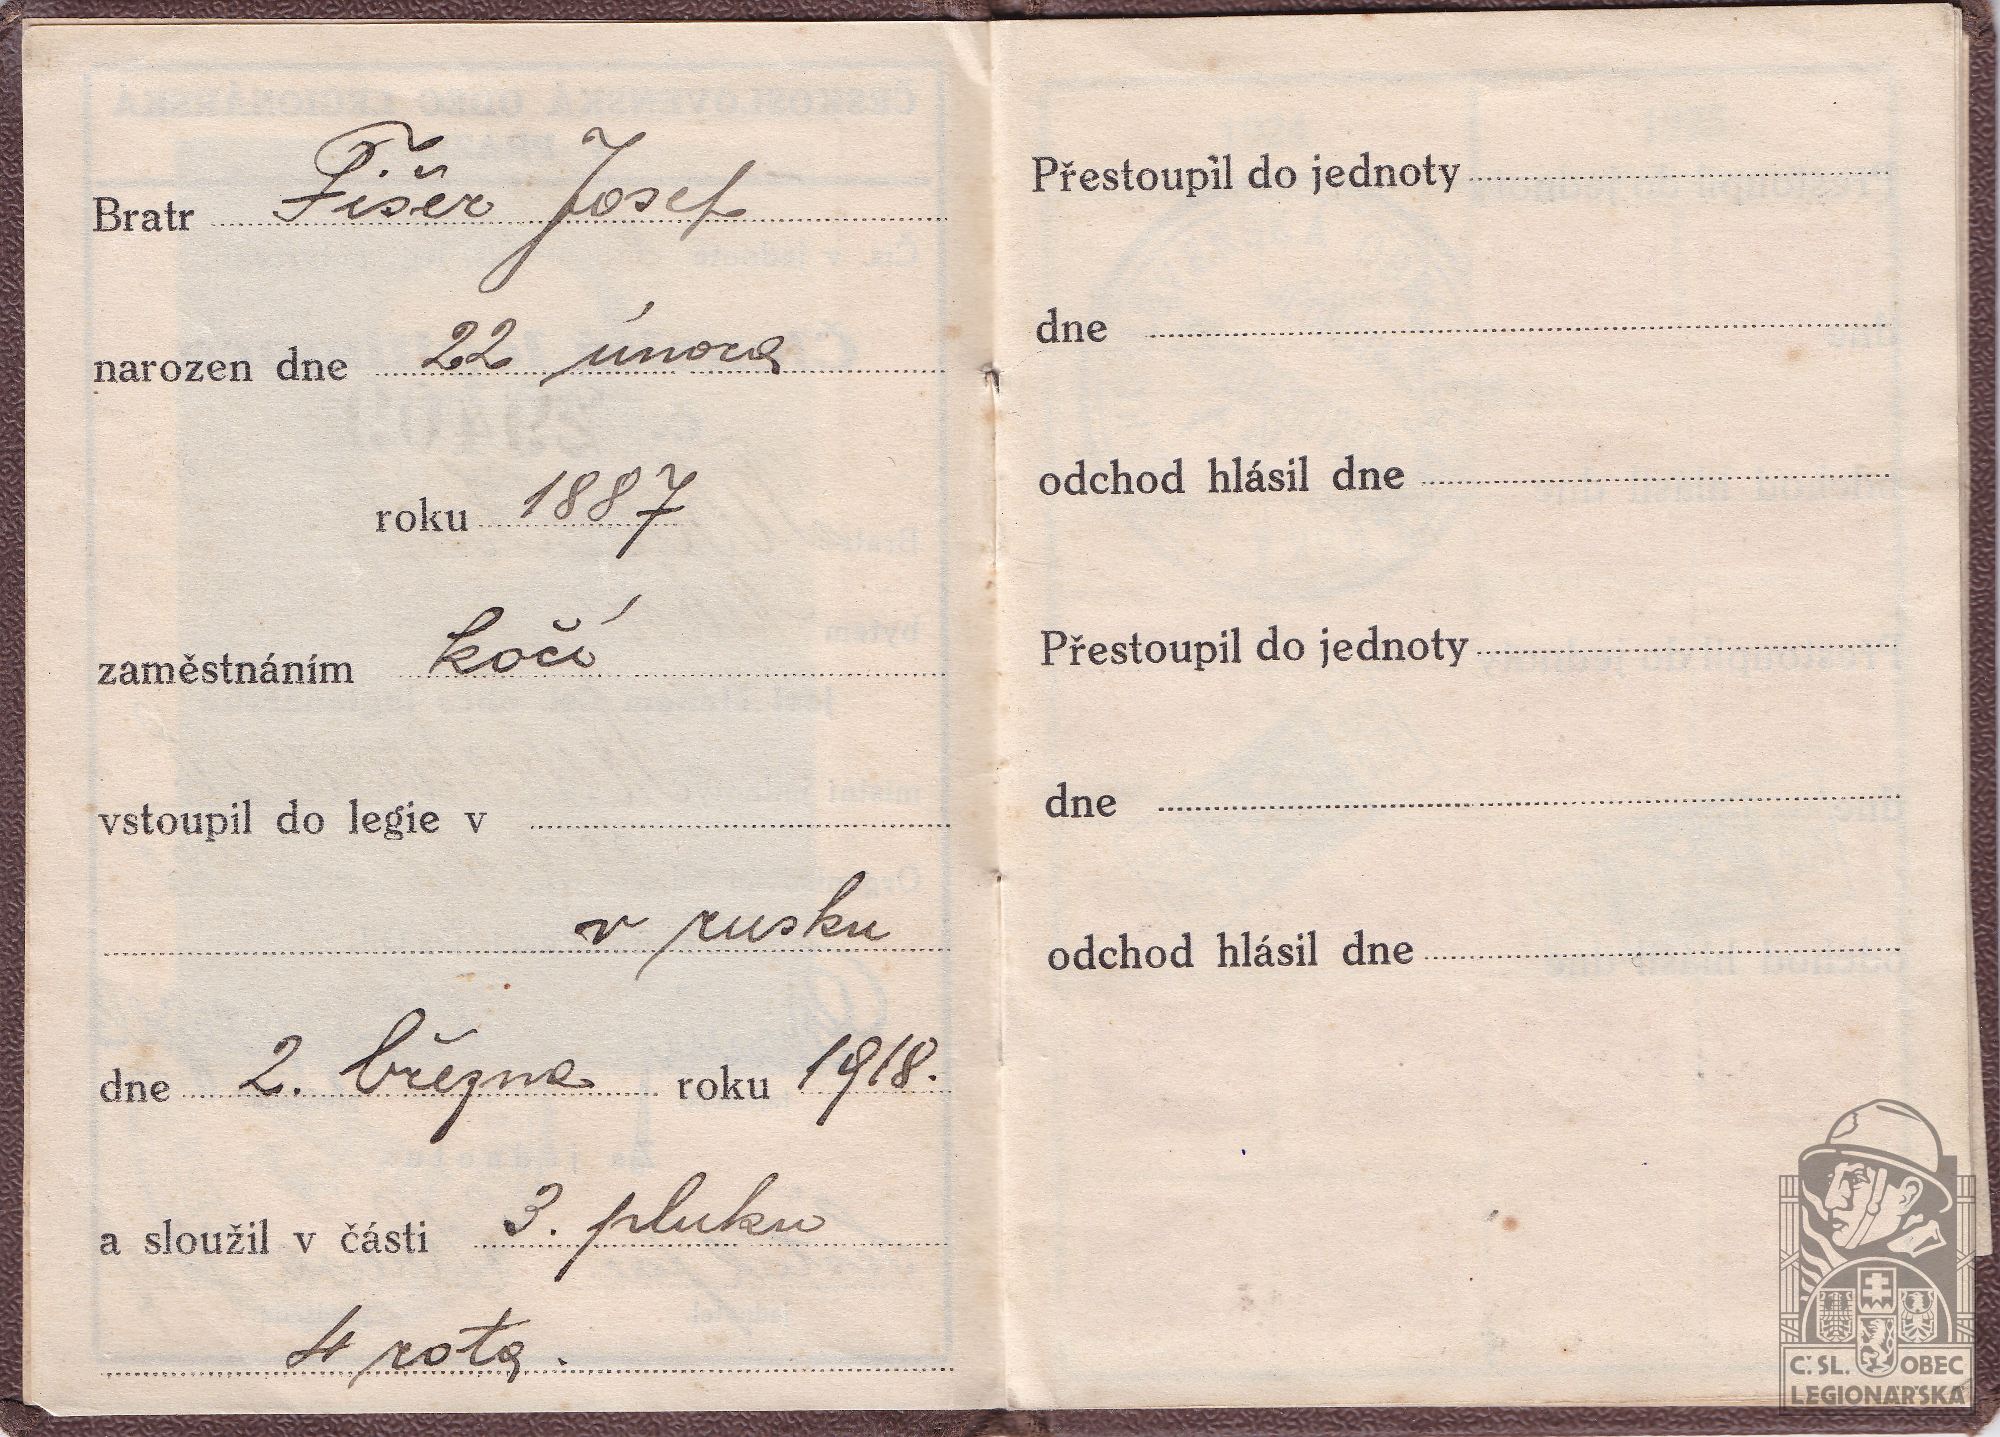 Bratr Fišer Josef
narozen dne 22 února
roku 1887
zaměstnáním kočí
vstoupil do legie v
v rusku
dne 2. března roku 1918.
a sloužil v části 3. pluku
4 rota.
Přestoupil do jednoty
dne
odchod hlásil dne
Přestoupil do jednoty
dne
odchod hlásil dne
Č. SL. OBEC
LEGIONÁŘSKÁ